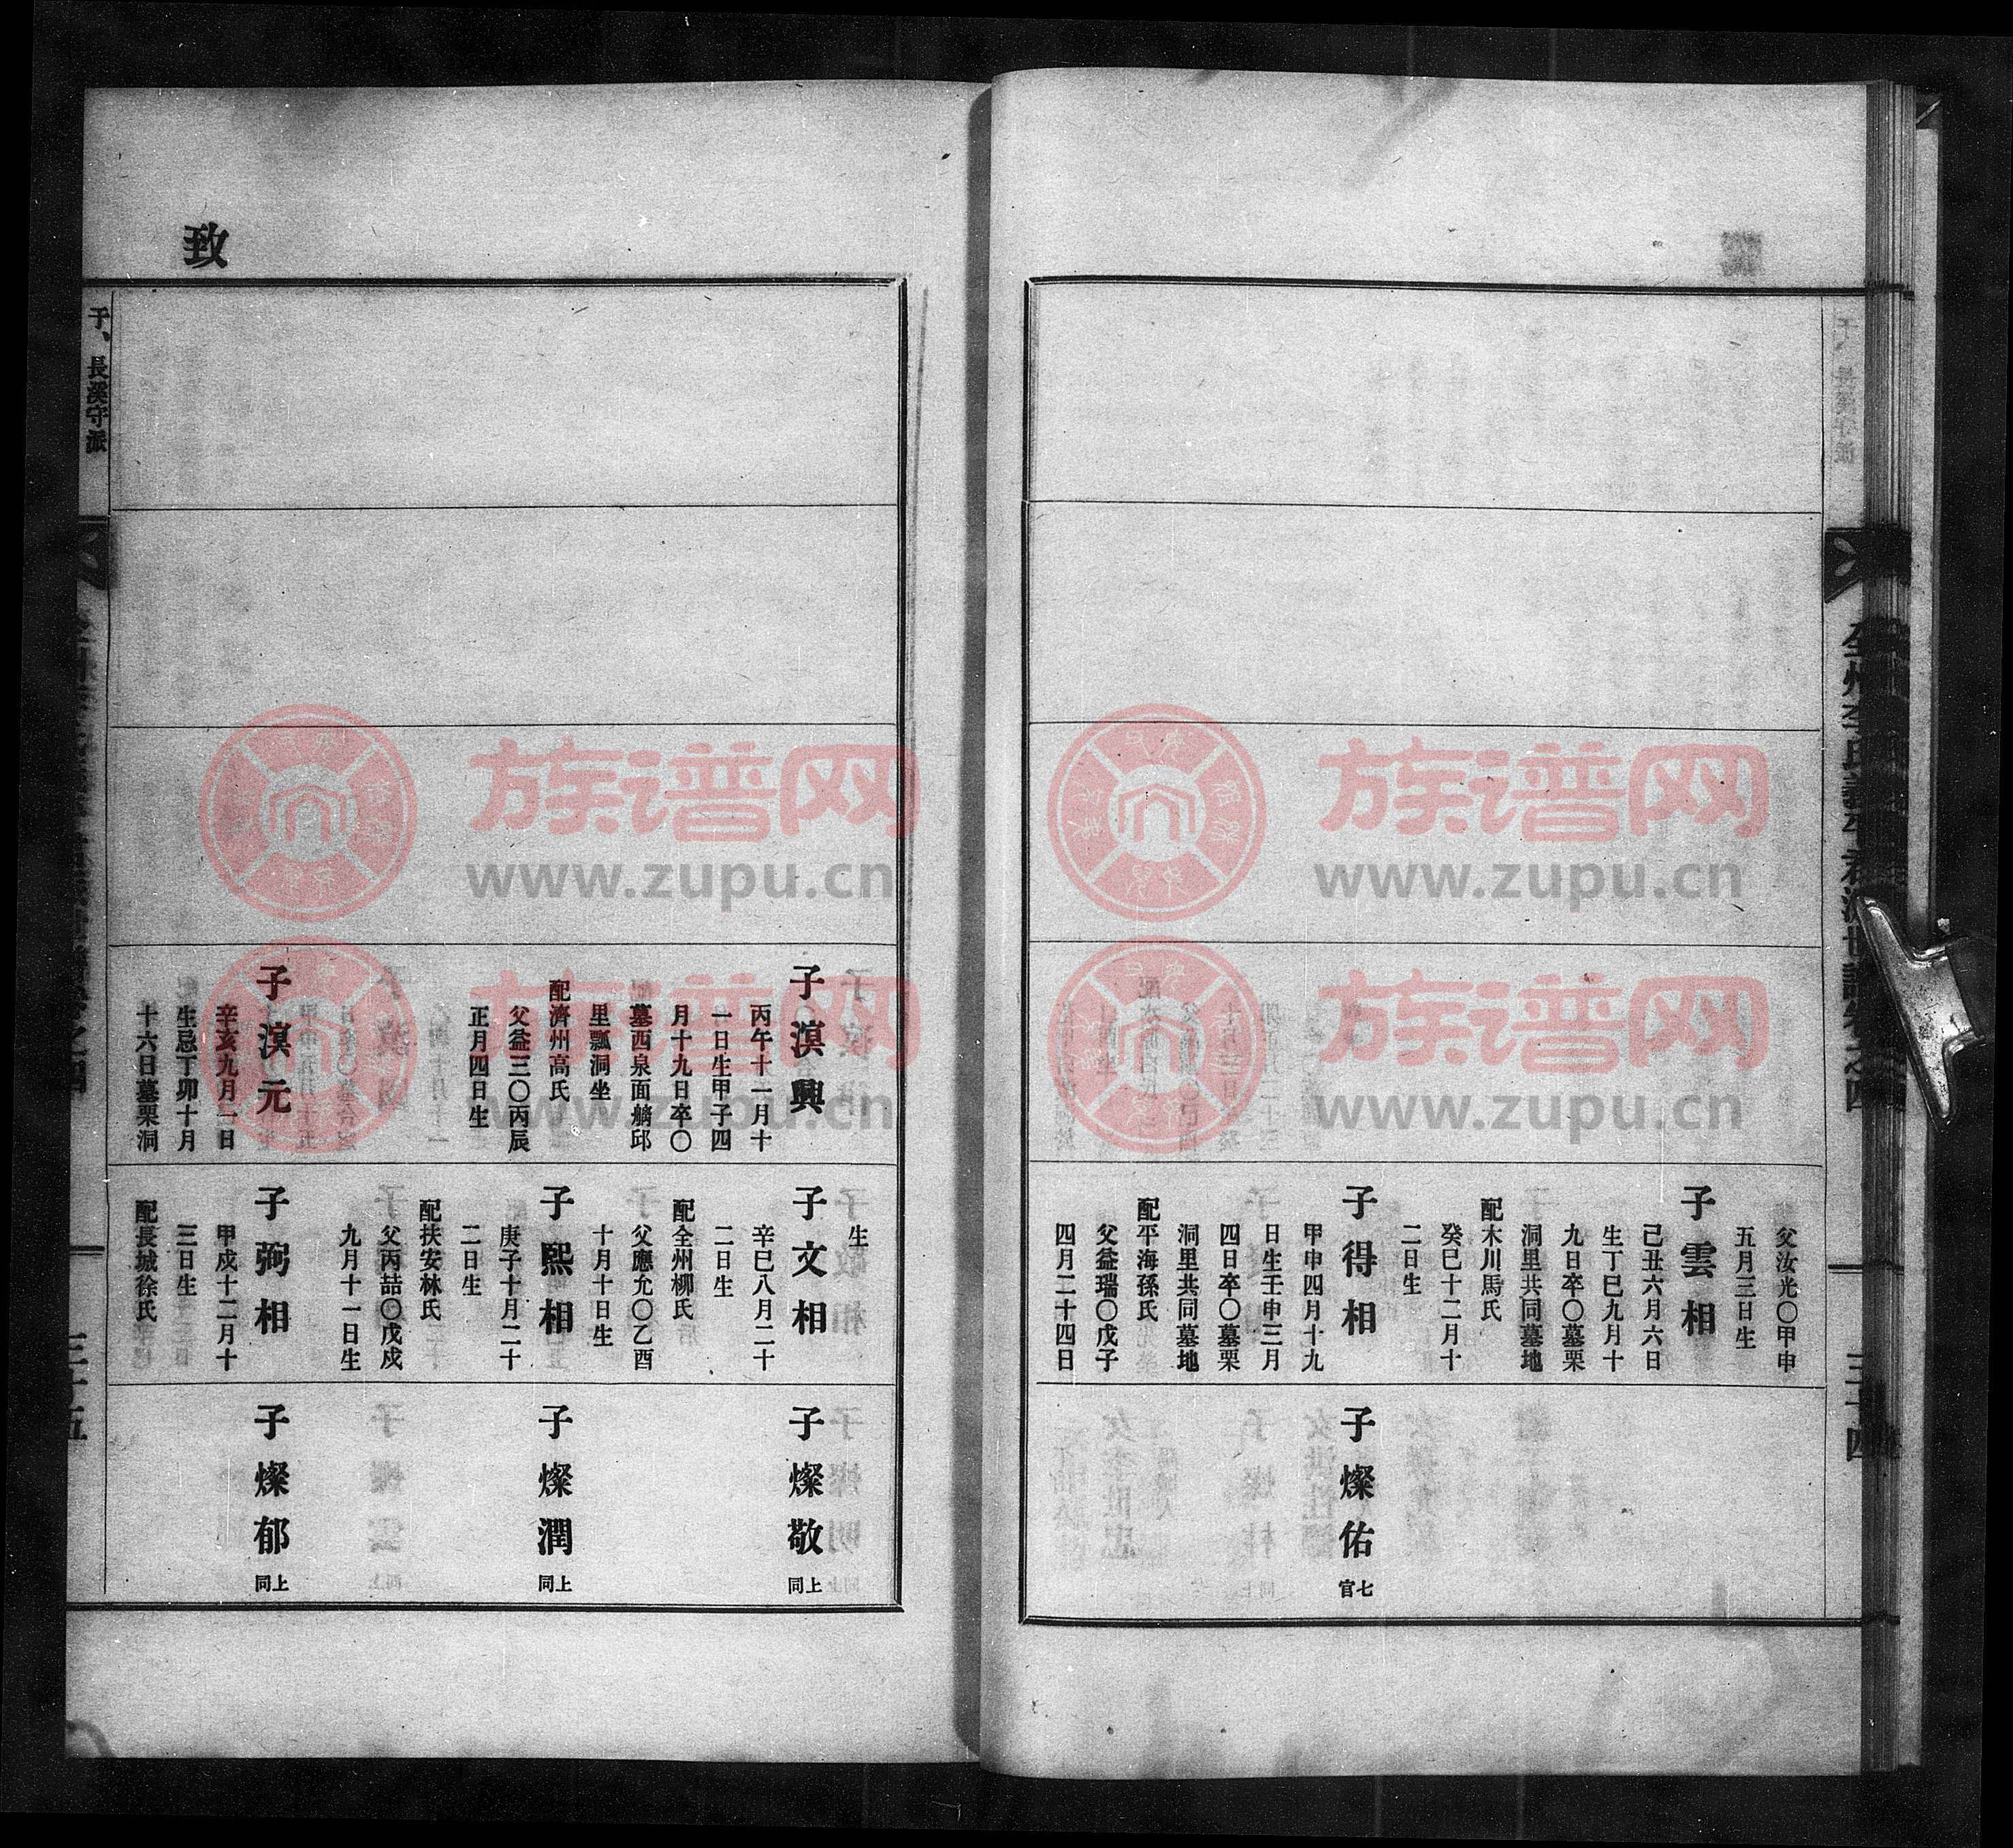 全州李氏
三十四
父汝光〇甲申
五月三日生
子雲相
己丑六月六日
生丁巳九月十
九日卒〇墓栗
洞里共同墓地
配木川馬氏
癸巳十二月十
二日生
子得相
甲申四月十九
日生壬申三月
四日卒〇墓栗
洞里共同墓地
配平海孫氏
父益瑞〇戊子
四月二十四日
子燦佑
七官
致
子溟興
丙午十一月十
一日生甲子四
月十九日卒〇
墓西泉面艄邱
里瓢洞坐
配濟州高氏
父益三〇丙辰
正月四日生
子溟元
辛亥九月一日
生忌丁卯十月
十六日墓栗洞
生
子文相
辛巳八月二十
二日生
配全州柳氏
父應允〇乙酉
十月十日生
子熙相
庚子十月二十
二日生
配扶安林氏
父丙喆〇戊戌
九月十一日生
子弼相
甲戌十二月十
三日生
配長城徐氏
子燦敬
上同
子燦潤
上同
子燦郁
上同
子、長溪守派
三十五
族谱网
www.zupu.cn
族谱网
www.zupu.cn
族谱网
www.zupu.cn
族谱网
www.zupu.cn